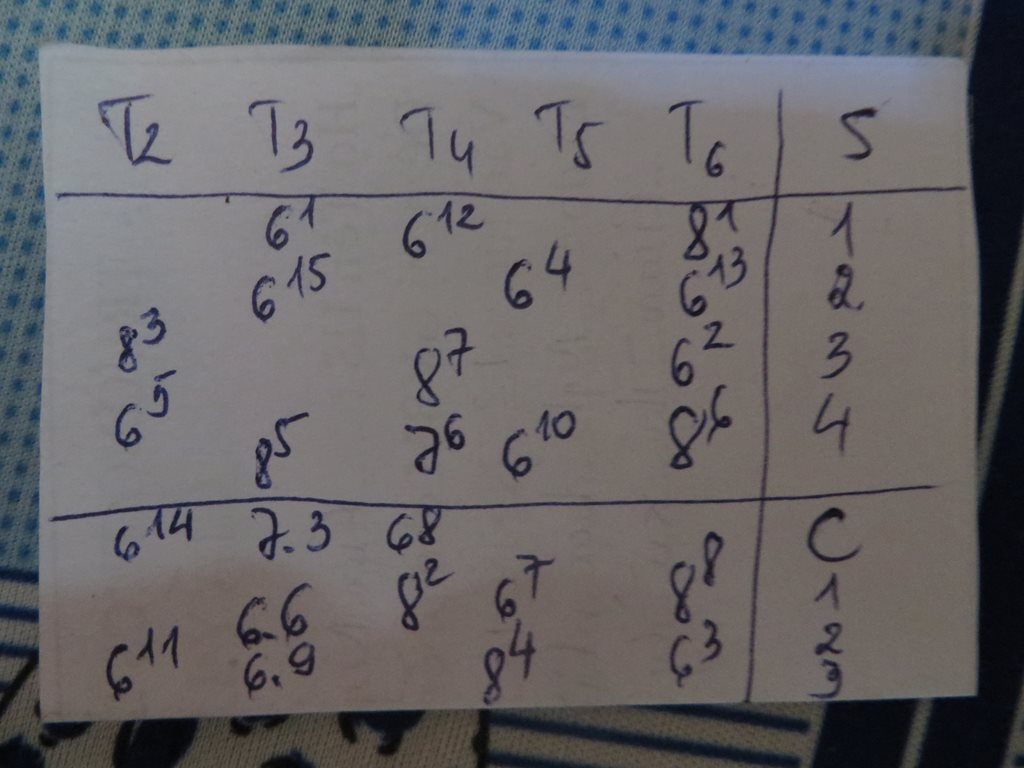 T2 T3 T4 T5 T6 S
6¹ 6¹² 8¹ 1
6¹⁵ 6⁴ 6¹³ 2
8³ 8⁷ 6² 3
6⁵ 8⁵ 7⁶ 6¹⁰ 8⁶ 4
6¹⁴ 7.3 68 C
8² 6⁷ 8⁸ 1
6¹¹ 6.6 8⁴ 6³ 2
6.9 3